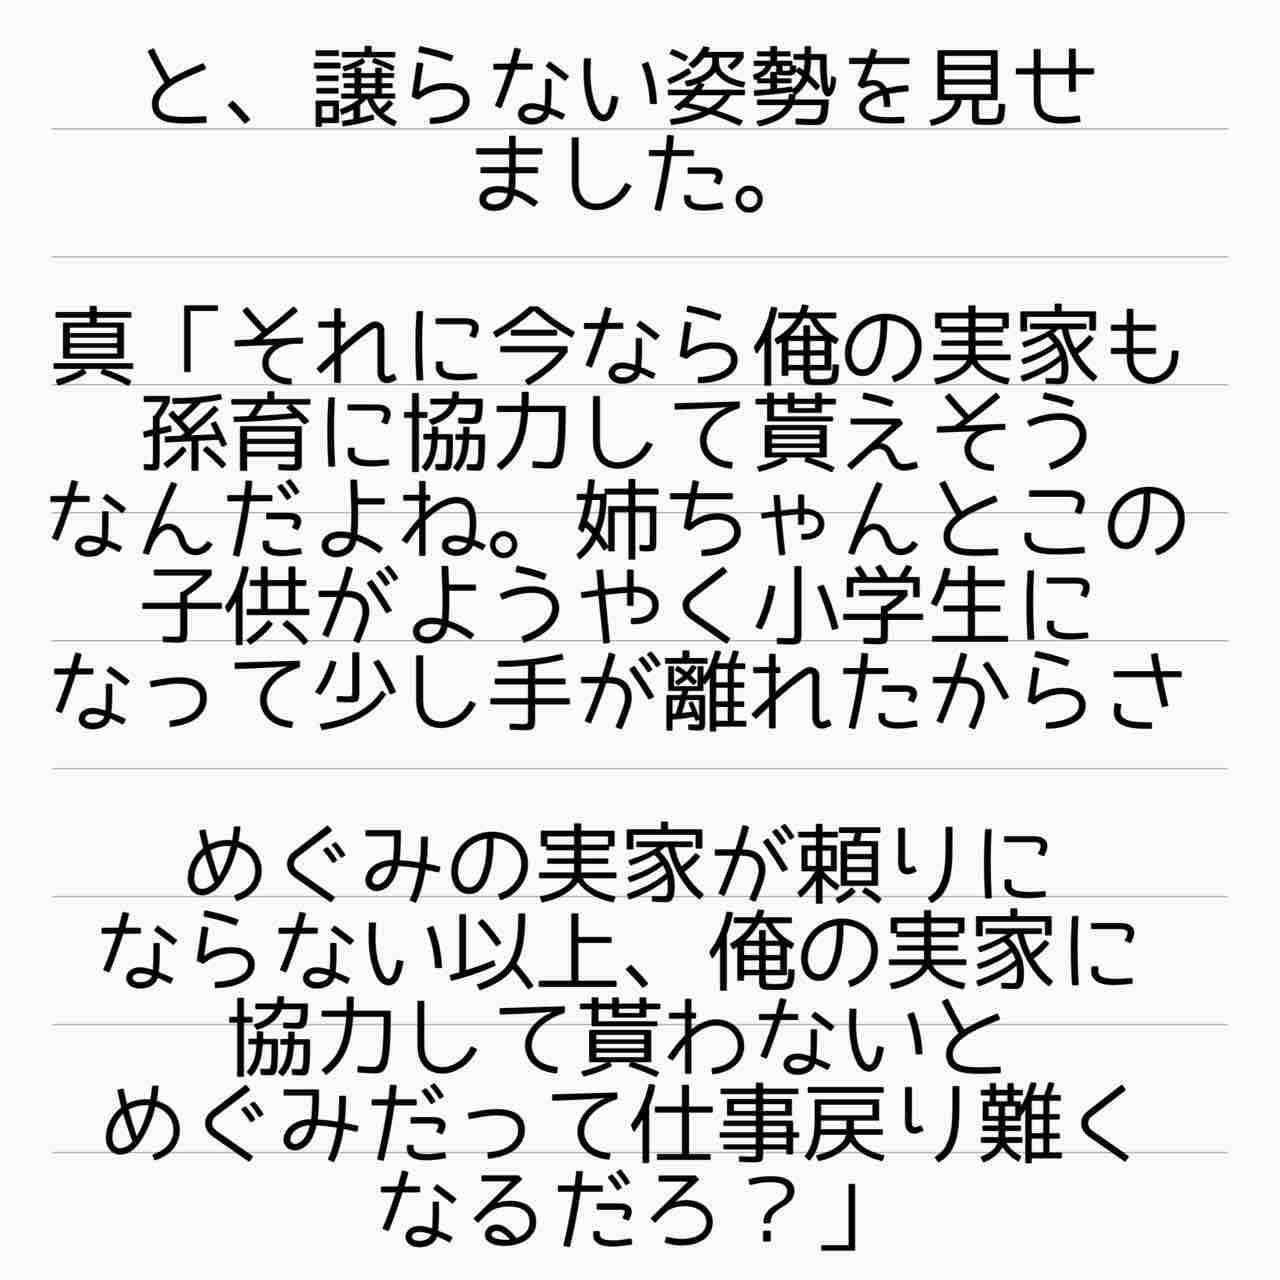 と、譲らない姿勢を見せ
ました。
真「それに今なら俺の実家も
孫育に協力して貰えそう
なんだよね。姉ちゃんとこの
子供がようやく小学生に
なって少し手が離れたからさ
めぐみの実家が頼りに
ならない以上、俺の実家に
協力して貰わないと
めぐみだって仕事戻り難く
なるだろ？」